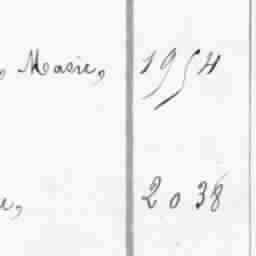 , Marie, 1954
e, 2038